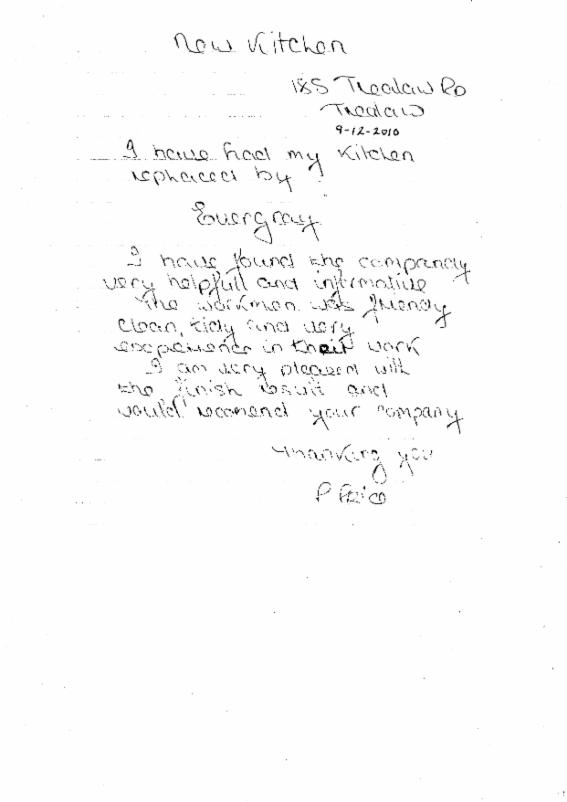 New Kitchen
185 Trealaw Rd
Trealaw
9-12-2010
I have had my Kitchen
rephaced by
Evergray
I have found the company
very helpfull and informative
The workmen was friendy
clean, tidy and very
in their work
I am very pleased with
the finish result and
would recomend your company
Thanking you
P Price